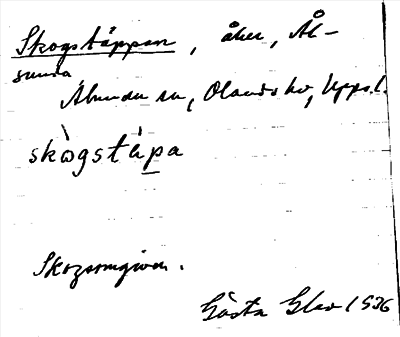 Skogstäppan, åker, Ål-
sunda
Alunda sn, Olands hd, Upps. l.
skògstàpa
Skogsomgiven.
Gösta Glas 1936